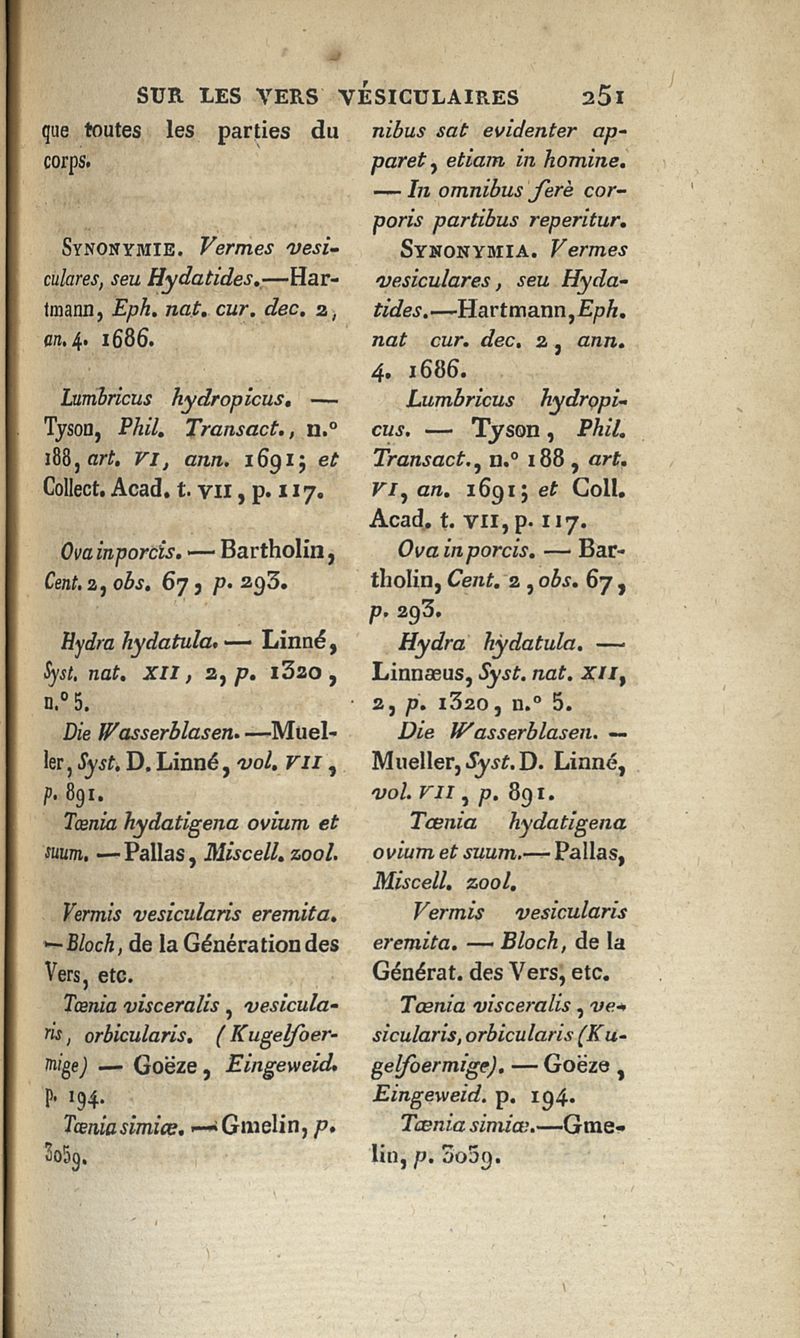 SUR LES VERS VÉSICULAIRES 251
que toutes les parties du
corps.
SYNONYMIE. Vermes vesi-
culares, seu Hydatides.—Har-
tmann, Eph. nat. cur. dec. 2,
an. 4. 1686.
Lumbricus hydropicus. —
Tyson, Phil. Transact., n.º
188, art. VI, ann. 1691; et
Collect. Acad. t. VII, p. 117.
Ova in porcis. — Bartholin,
Cent. 2, obs. 67, p. 293.
Hydra hydatula. — Linné,
Syst. nat. XII, 2, p. 1320,
n.º 5.
Die Wasserblasen. —Muel-
ler, Syst. D. Linné, vol. VII,
p. 891.
Tænia hydatigena ovium et
suum. — Pallas, Miscell. zool.
Vermis vesicularis eremita.
— Bloch, de la Génération des
Vers, etc.
Tænia visceralis, vesicula-
ris, orbicularis. (Kugelfoer-
mige) — Goëze, Eingeweid.
p. 194.
Tænia simiæ. — Gmelin, p.
3059.
nibus sat evidenter ap-
paret, etiam in homine.
— In omnibus ferè cor-
poris partibus reperitur.
SYNONYMIA. Vermes
vesiculares, seu Hyda-
tides.—Hartmann, Eph.
nat cur. dec. 2, ann.
4. 1686.
Lumbricus hydropi-
cus. — Tyson, Phil.
Transact., n.º 188, art.
VI, an. 1691; et Coll.
Acad. t. VII, p. 117.
Ova in porcis. — Bar-
tholin, Cent. 2, obs. 67,
p. 293.
Hydra hydatula. —
Linnæus, Syst. nat. XII,
2, p. 1320, n.º 5.
Die Wasserblasen. —
Mueller, Syst. D. Linné,
vol. VII, p. 891.
Tænia hydatigena
ovium et suum.— Pallas,
Miscell. zool.
Vermis vesicularis
eremita. — Bloch, de la
Générat. des Vers, etc.
Tænia visceralis, ve-
sicularis, orbicularis (Ku-
gelfoermige). — Goëze,
Eingeweid. p. 194.
Tænia simiæ.—Gme-
lin, p. 3059.